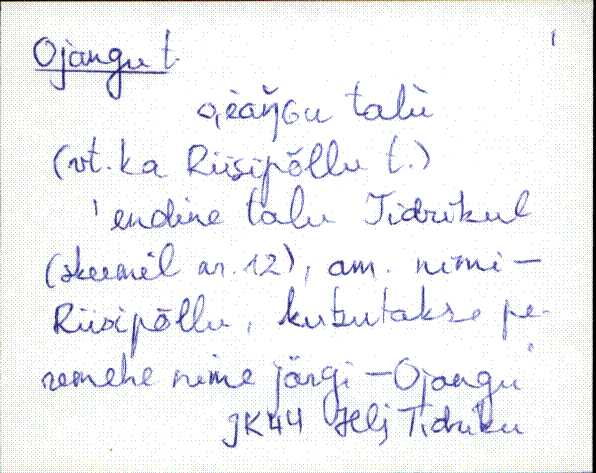 Ojangu t.
o̭i̯aŋ̆Gu talù
(vt. ka Riisipõllu t.)
' endine talu Tidrikul
(skeemil nr. 12), am. nimi —
Riisipõllu, kutsutakse pe-
remehe nime järgi — Ojangu '
JK44 Helj Tidriku